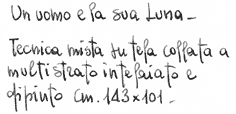 Un uomo e la sua Luna -
Tecnica mista su tela collata a
multistrato intelaiato e
dipinto cm. 143x101 -